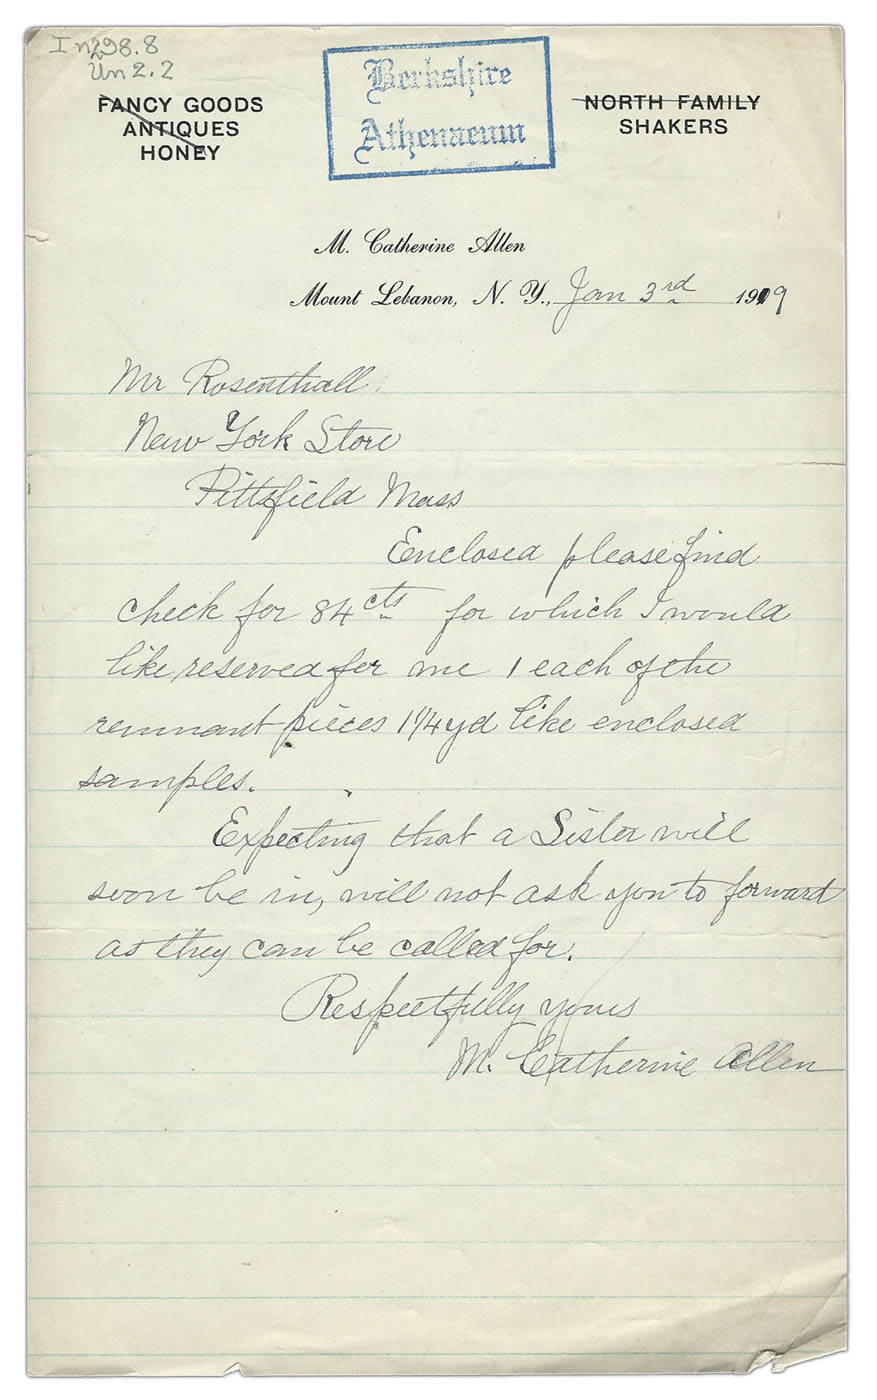 In298.8
Un2.2
FANCY GOODS
ANTIQUES
HONEY
Berkshire
Athenaeum
NORTH FAMILY
SHAKERS
M. Catherine Allen
Mount Lebanon, N. Y., Jan 3rd 1919
Mr Rosenthall
New York Store
Pittsfield Mass
Enclosed please find
check for 84cts for which I would
like reserved for me 1 each of the
remnant pieces 1 1/4 yd like enclosed
samples.
Expecting that a Sister will
soon be in, will not ask you to forward
as they can be called for.
Respectfully yours
M. Catherine Allen